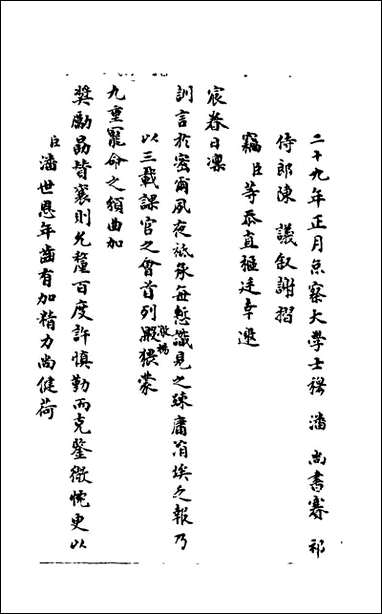 二十九年正月京察大學士穆 潘 尚書賽 祁
侍郎陳 議叙謝摺
竊臣等忝直樞廷幸邀
宸眷日凛
訓言於密爾夙夜祗承每慙識見之疎庸涓埃之報乃
以三載課官之會首列殿揚猥蒙
九重寵命之頒曲加
奬勵勗皆襄則允釐百度許慎勤而克鑒微忱更以
臣潘世恩年齒有加精力尚健荷